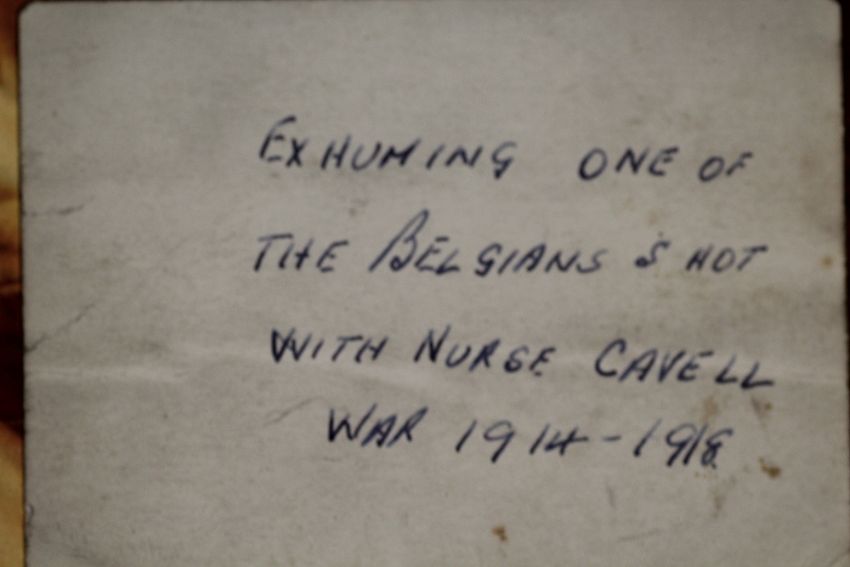 EXHUMING ONE OF
THE BELGIANS SHOT
WITH NURSE CAVELL
WAR 1914-1918